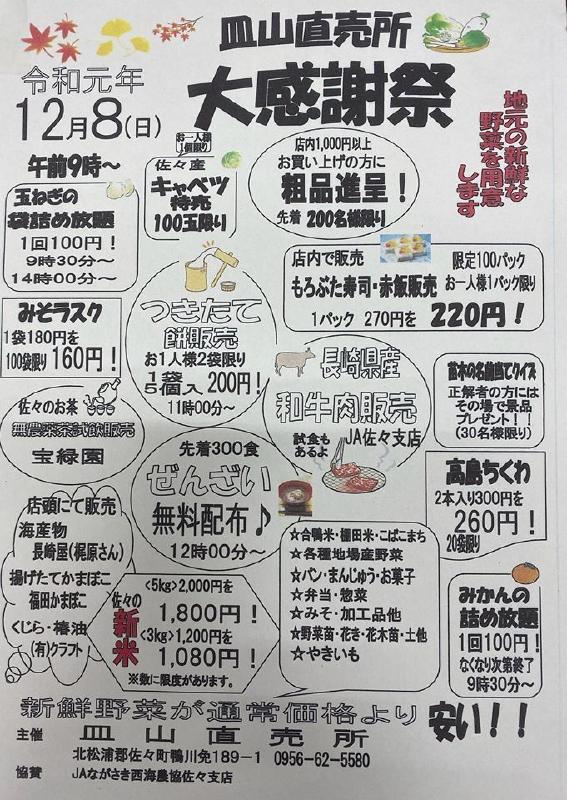 皿山直売所
大感謝祭
令和元年
12月8(日)
午前9時～
地元の新鮮な
野菜を用意
します
お一人様
1個限り
佐々産
キャベツ
特売
100玉限り
店内1,000円以上
お買い上げの方に
粗品進呈！
先着 200名様限り
玉ねぎの
袋詰め放題
1回100円！
9時30分～
14時00分～
店内で販売 限定100パック
もろぶた寿司・赤飯販売 お一人様1パック限り
1パック 270円を 220円！
みそラスク
1袋180円を
100袋限り 160円！
つきたて
餅販売
お1人様2袋限り
1袋
5個入 200円！
11時00分～
長崎県産
和牛肉販売
試食も
あるよ
JA佐々支店
苗木の名前当てクイズ
正解者の方には
その場で景品
プレゼント！！
(30名様限り)
佐々のお茶
無農薬茶試飲販売
宝緑園
先着300食
ぜんざい
無料配布♪
12時00分～
高島ちくわ
2本入り300円を
260円！
20袋限り
店頭にて販売
海産物
長崎屋(梶原さん)
揚げたてかまぼこ
福田かまぼこ
くじら・椿油
(有)クラフト
佐々の
新米
<5kg>2,000円を
1,800円！
<3kg>1,200円を
1,080円！
※数に限度があります。
☆合鴨米・棚田米・こばこまち
☆各種地場産野菜
☆パン・まんじゅう・お菓子
☆弁当・惣菜
☆みそ・加工品他
☆野菜苗・花き・花木苗・土他
☆やきいも
みかんの
詰め放題
1回100円！
なくなり次第終了
9時30分～
新鮮野菜が通常価格より 安い！！
主催 皿山直売所
北松浦郡佐々町鴨川免189－1 0956-62-5580
協賛 JAながさき西海農協佐々支店